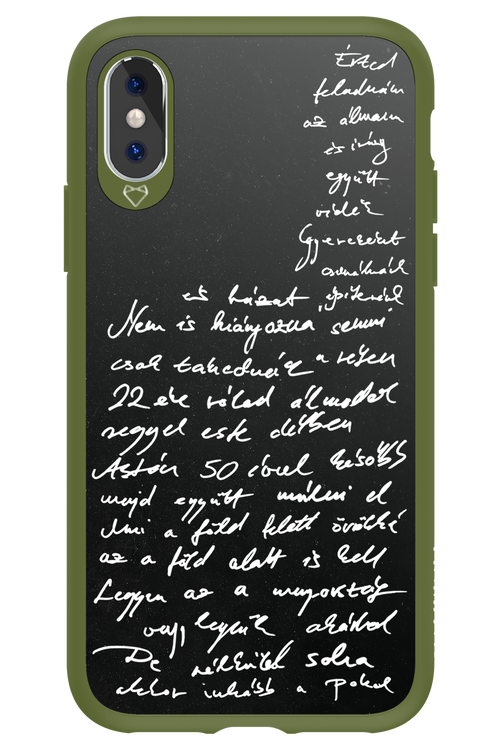 Érted
feladnám
az álmom
és irány
együtt
vidék
Gyerekeket
csinálnánk
és házat építenénk
Nem is hiányozna semmi
csak takednék a réten
22 éve rólad álmodok
reggel este délben
Aztán 50 évvel később
majd együtt múlni el
Ami a föld felett örökké
az a föld alatt is kell
Legyen az a mennyország
vagy legyünk akárhol
De nélküled soha
akkor inkább a Pokol